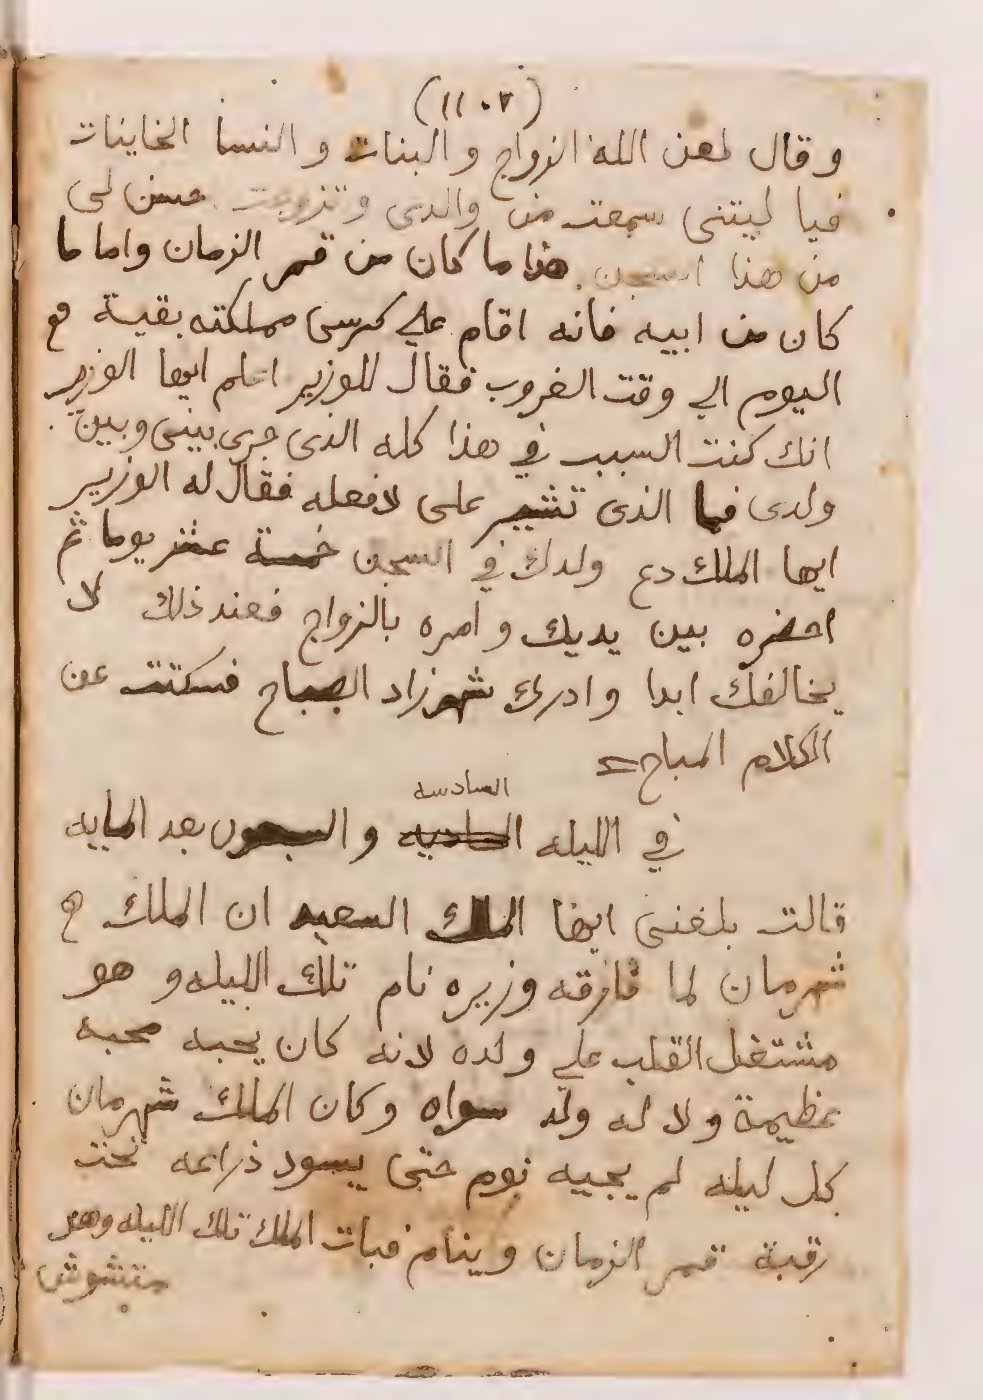 (١١٠٢)
وقال لعن الله الزواج والبنات والنسا الخاينات
فيا ليتنى سمعت من والدى وتزوجت
من هذا السجن. هذا ما كان من قمر الزمان واما ما
كان من ابيه فانه اقام على كرسى مملكته بقية
اليوم الى وقت الغروب فقال للوزير اعلم ايها الوزير
انك كنت السبب في هذا كله الذى جرى بينى وبين
ولدى فما الذى تشير على لافعله فقال له الوزير
ايها الملك دع ولدك في السجن خمسة عشر يوما ثم
احضره بين يديك وامره بالزواج فعند ذلك لا
يخالفك ابدا وادرك شهرزاد الصباح فسكتت عن
الكلام المباح
السادسه
في الليله الحاديه والسبعون بعد المايه
قالت بلغنى ايها الملك السعيد ان الملك
شهرمان لما فارقه وزيره نام تلك الليله وهو
مشتغل القلب على ولده لانه كان يحبه محبه
عظيمة ولا له ولد سواه وكان الملك شهرمان
كل ليله لم يجيه نوم حتى يسود ذراعه تحت
رقبة قمر الزمان وينام فبات الملك تلك الليله وهو
متشوش